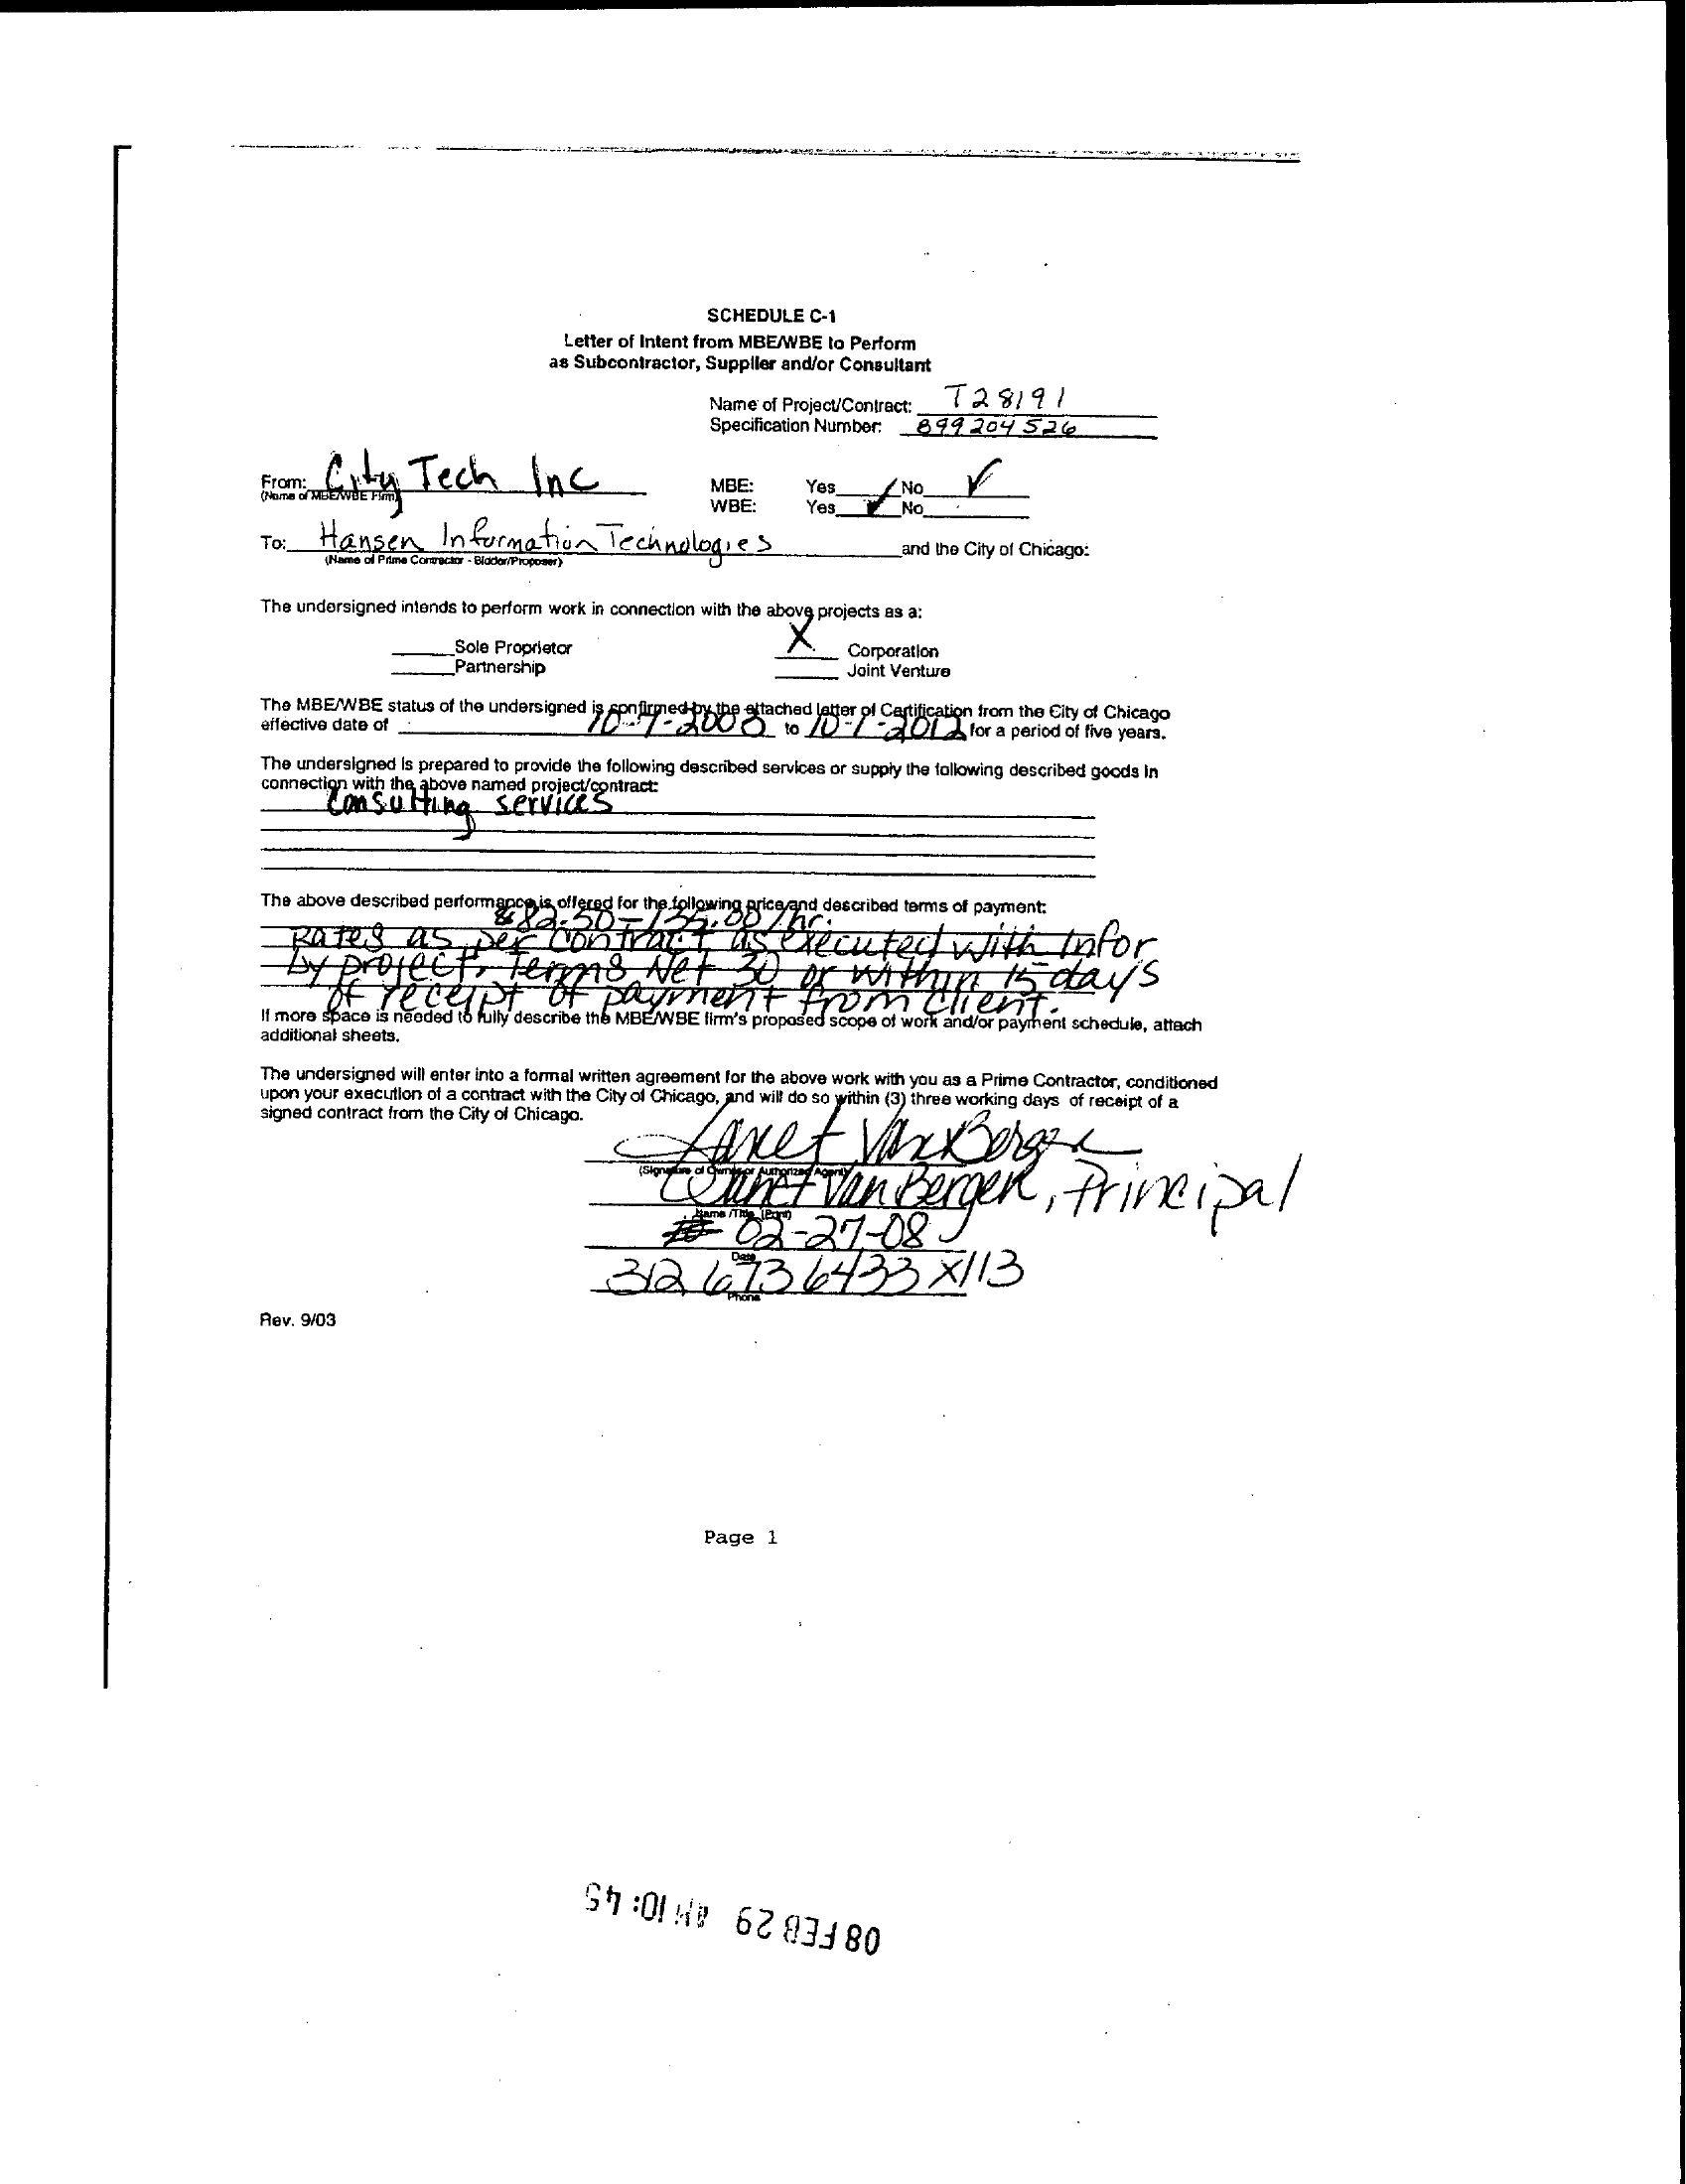 SCHEDULE C-1
Letter of Intent from MBE/WBE to Perform
as Subcontractor, Supplier and/or Consultant
Name of Project/Contract: T28191
Specification Number: 899204526
From: City Tech Inc MBE: Yes No ✓
(Name of MBE/WBE Firm) WBE: Yes ✓ No
To: Hansen Information Technologies and the City of Chicago:
(Name of Prime Contractor - Bidder/Proposer)
The undersigned intends to perform work in connection with the above projects as a:
Sole Proprietor X Corporation
Partnership Joint Venture
The MBE/WBE status of the undersigned is confirmed by the attached letter of Certification from the City of Chicago
effective date of to 10-1-2012 for a period of five years.
The undersigned is prepared to provide the following described services or supply the following described goods in
connection with the above named project/contract:
Consulting services
The above described performance is offered for the following price and described terms of payment:
82.50-135.00/hr.
Rates as per contract as executed with Infor
by project. Terms Net 30 or within 15 days
of receipt of payment from client.
If more space is needed to fully describe the MBE/WBE firm's proposed scope of work and/or payment schedule, attach
additional sheets.
The undersigned will enter into a formal written agreement for the above work with you as a Prime Contractor, conditioned
upon your execution of a contract with the City of Chicago, and will do so within (3) three working days of receipt of a
signed contract from the City of Chicago.
Janet VanBergen
(Signature of Owner or Authorized Agent)
Janet Van Bergen, Principal
Name /Title (Print)
02-27-08
Date
312 673 6433 x113
Phone
Rev. 9/03
Page 1
08 FEB 29 AM 10:45